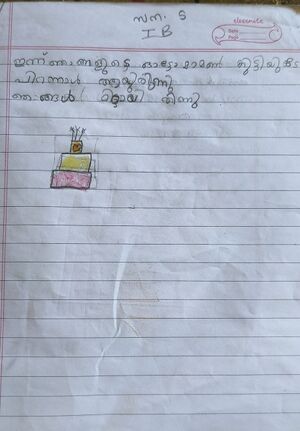 സന. S
I B
classmate
Date
Page
ഇന്ന് ഞങ്ങളുടെ ഓട്ടോ മാമൻ്റെ കുട്ടിയുടെ
പിറന്നാൾ ആയിരുന്നു
ഞങ്ങൾ മിട്ടായി തിന്നു